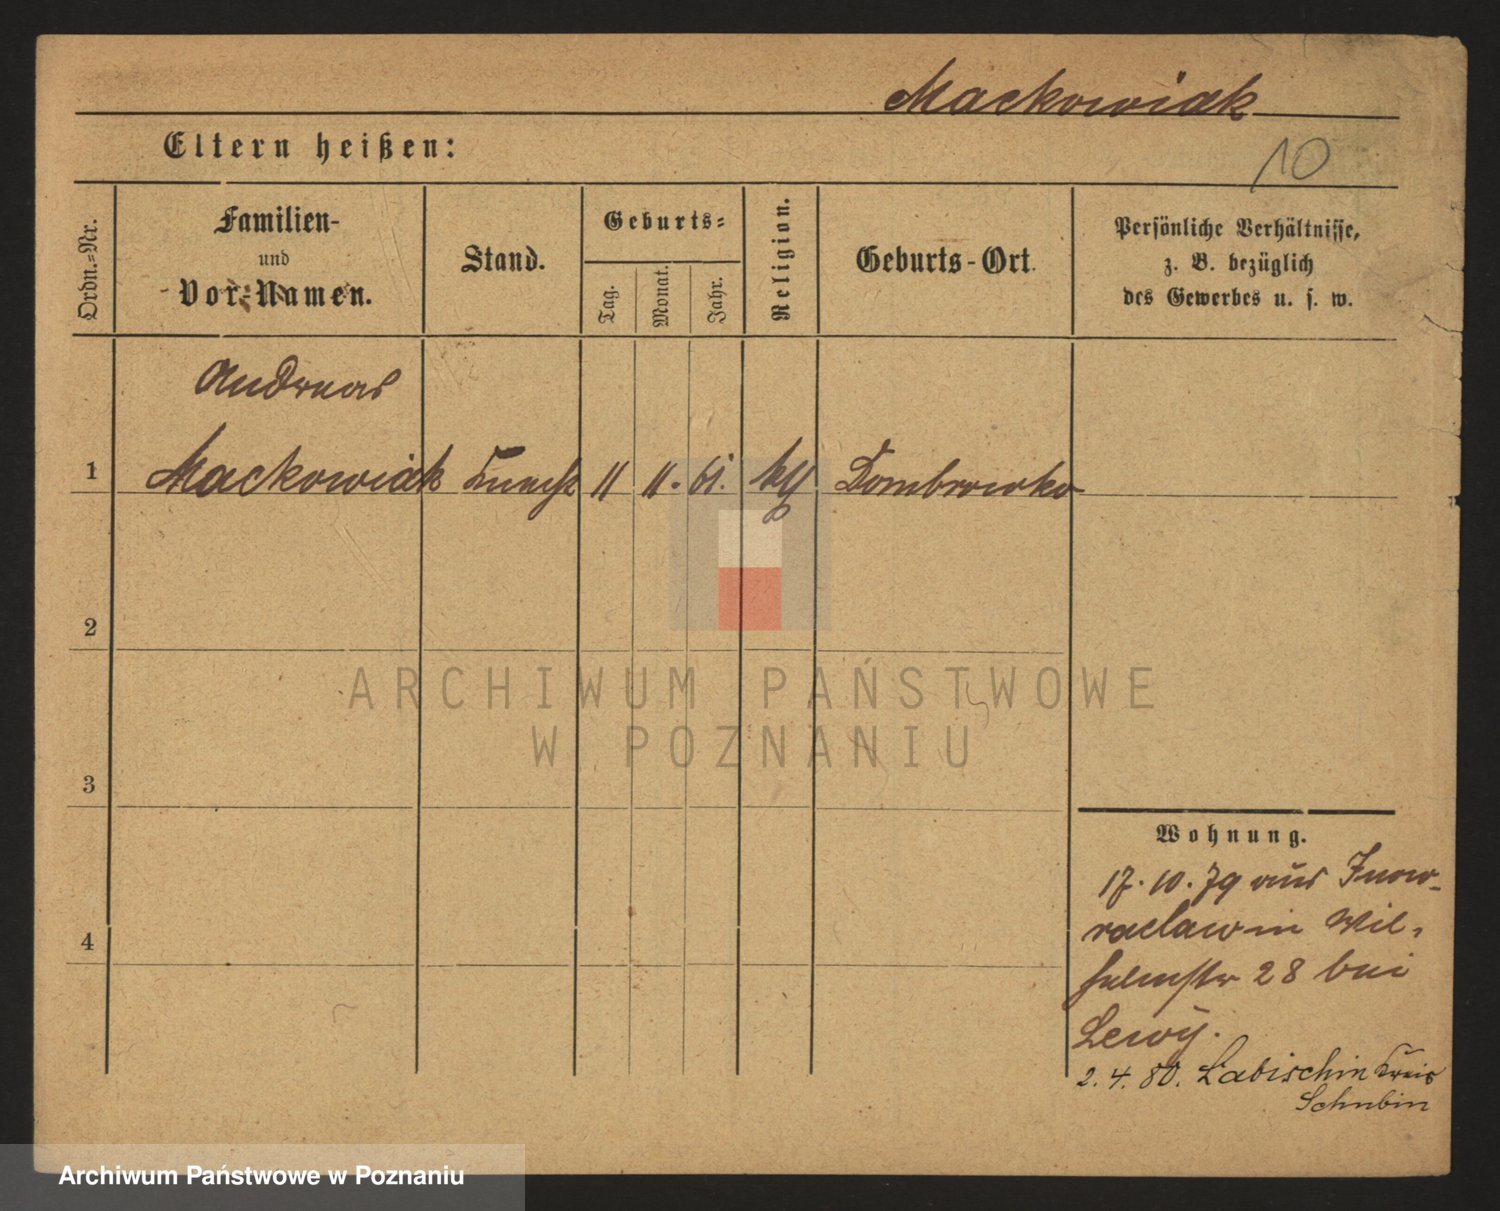 Mackowiak
Eltern heißen:
10
Ordn.=Nr.
Familien-
und
Vor-Namen.
Stand.
Geburts=
Tag.
Monat.
Jahr.
Religion.
Geburts-Ort.
Persönliche Verhältnisse,
z. B. bezüglich
des Gewerbes u. s. w.
Andreas
1 Mackowiak Knecht 11 11. 61. kth Dombrowko
2
3
4
Wohnung.
17. 10. 79 aus Inow-
raclaw in Wil-
helmstr 28 bei
Lewy.
2. 4. 80. Labischin Kreis
Schubin
ARCHIWUM PAŃSTWOWE
W POZNANIU
Archiwum Państwowe w Poznaniu